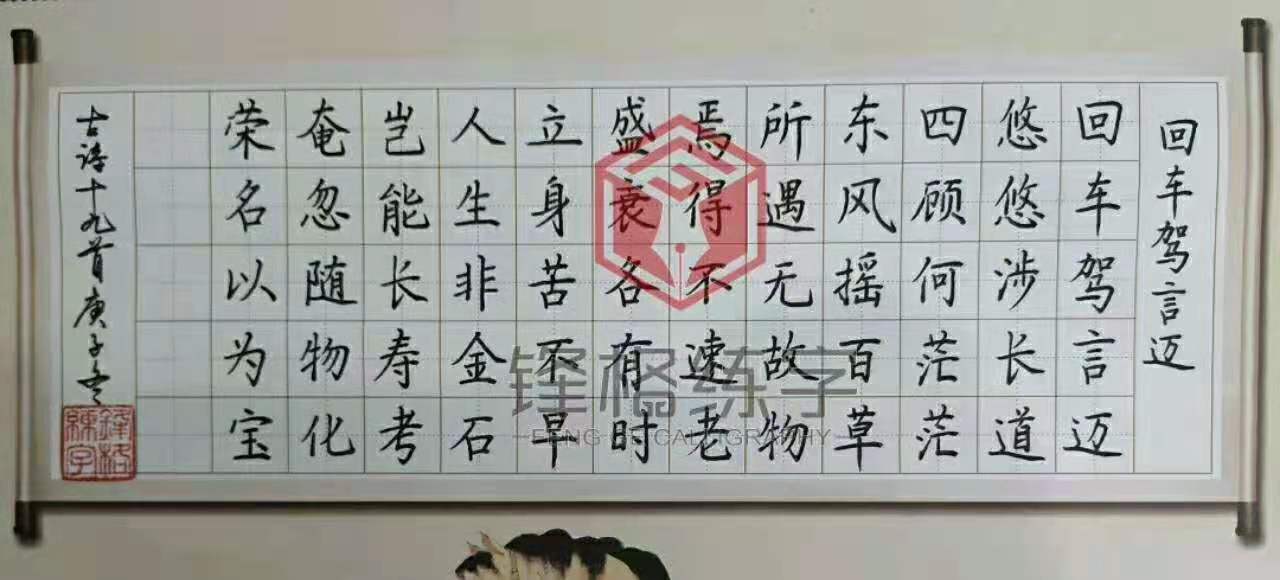 回车驾言迈
回车驾言迈
悠悠涉长道
四顾何茫茫
东风摇百草
所遇无故物
焉得不速老
盛衰各有时
立身苦不早
人生非金石
岂能长寿考
奄忽随物化
荣名以为宝
古诗十九首庚子冬
鋒格練字
锋格练字
FENG GE CALLIGRAPHY